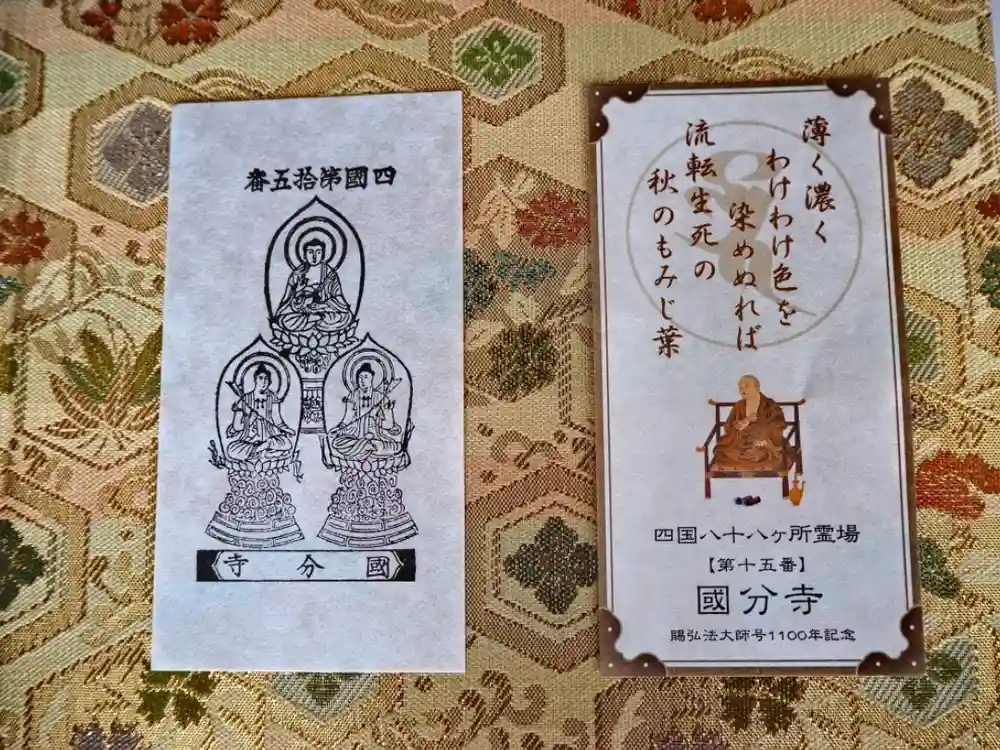 四國第拾五番
國分寺
薄く濃く
わけわけ色を
染めぬれば
流転生死の
秋のもみじ葉
四国八十八ヶ所霊場
【第十五番】
國分寺
賜弘法大師号1100年記念